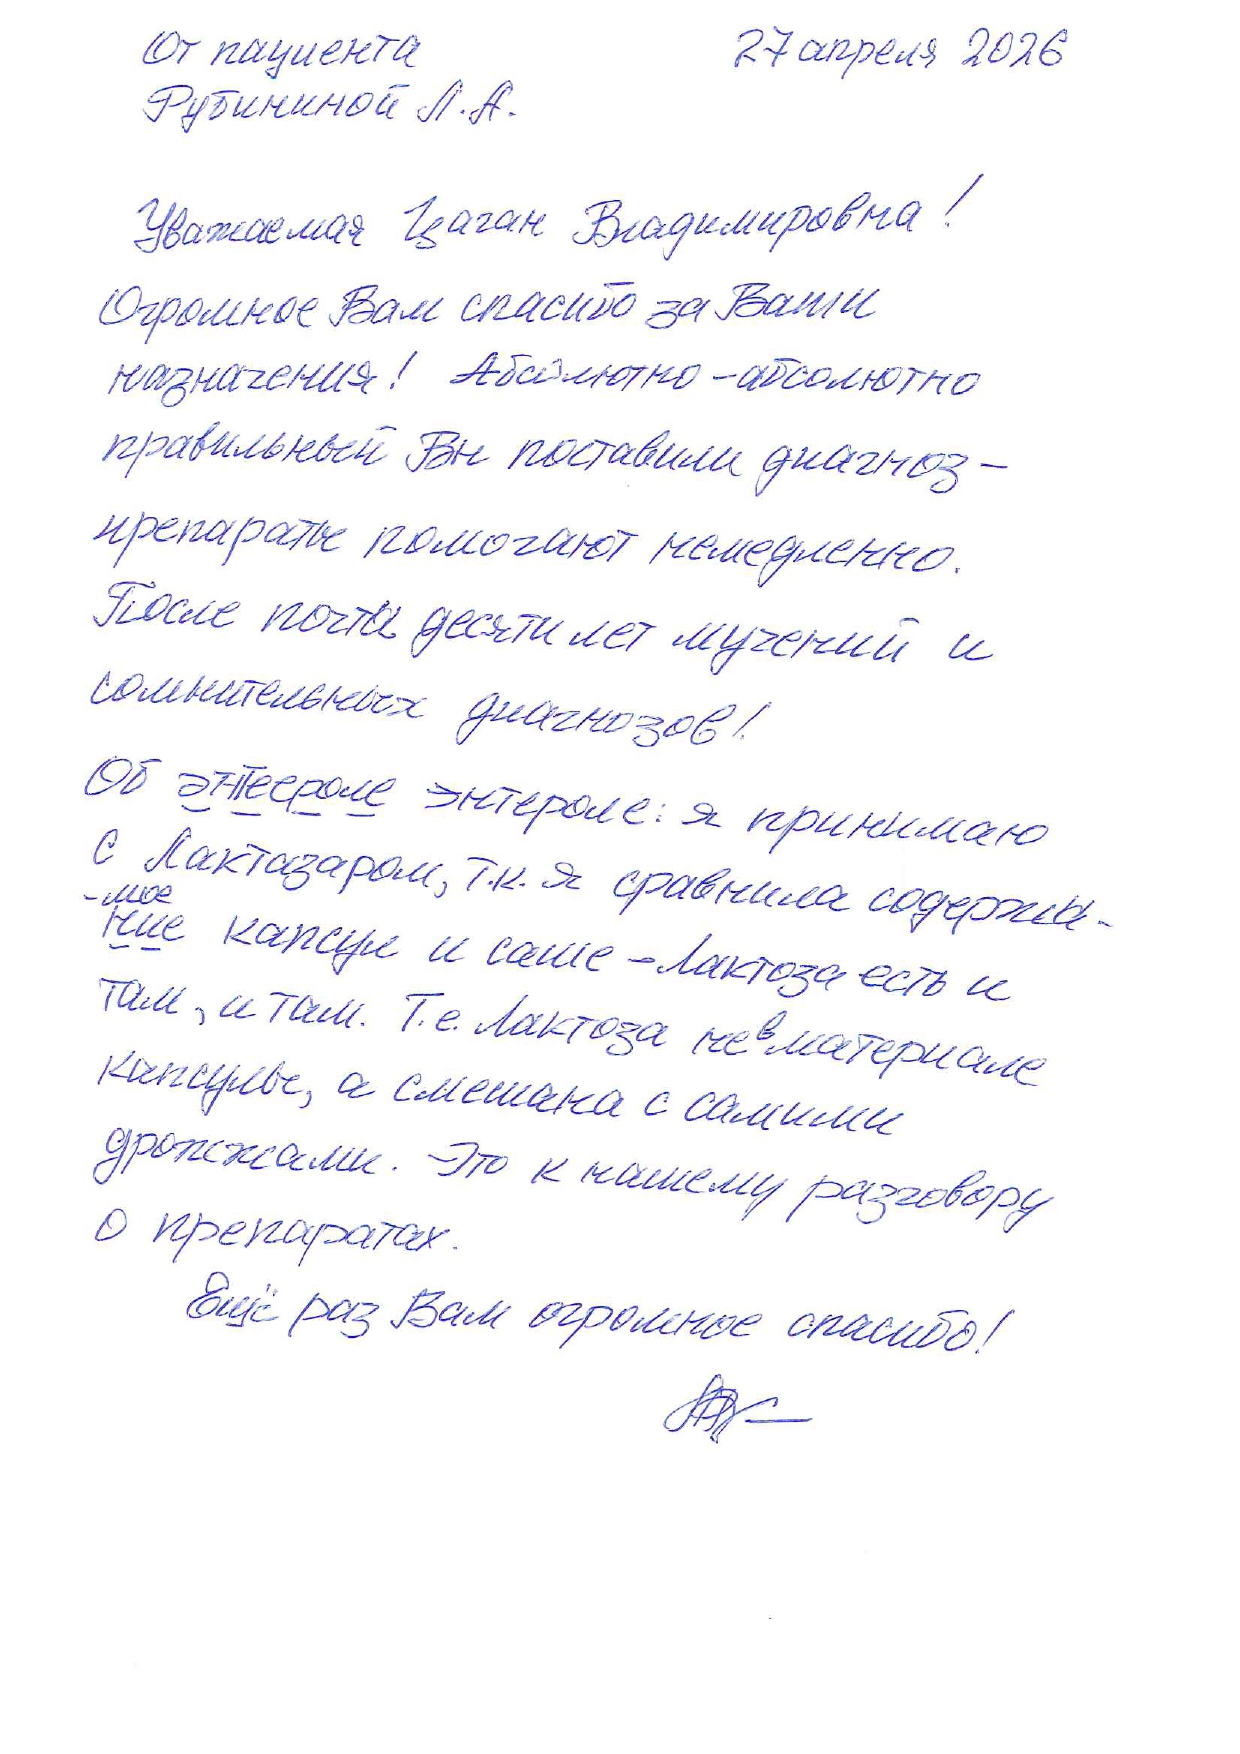 От пациента 27 апреля 2026
Рубининой Л.А.
Уважаемая Цаган Владимировна!
Огромное Вам спасибо за Ваши
назначения! Абсолютно-абсолютно
правильный Вы поставили диагноз –
препараты помогают немедленно.
После почти десяти лет мучений и
сомнительных диагнозов!
Об энтероле: я принимаю
с Лактазаром, т.к. я сравнила содержи-
-мое
ние капсул и саше – Лактоза есть и
там, и там. Т.е. Лактоза не в материале
капсулы, а смешана с самими
дрожжами. Это к нашему разговору
о препаратах.
Ещё раз Вам огромное спасибо!